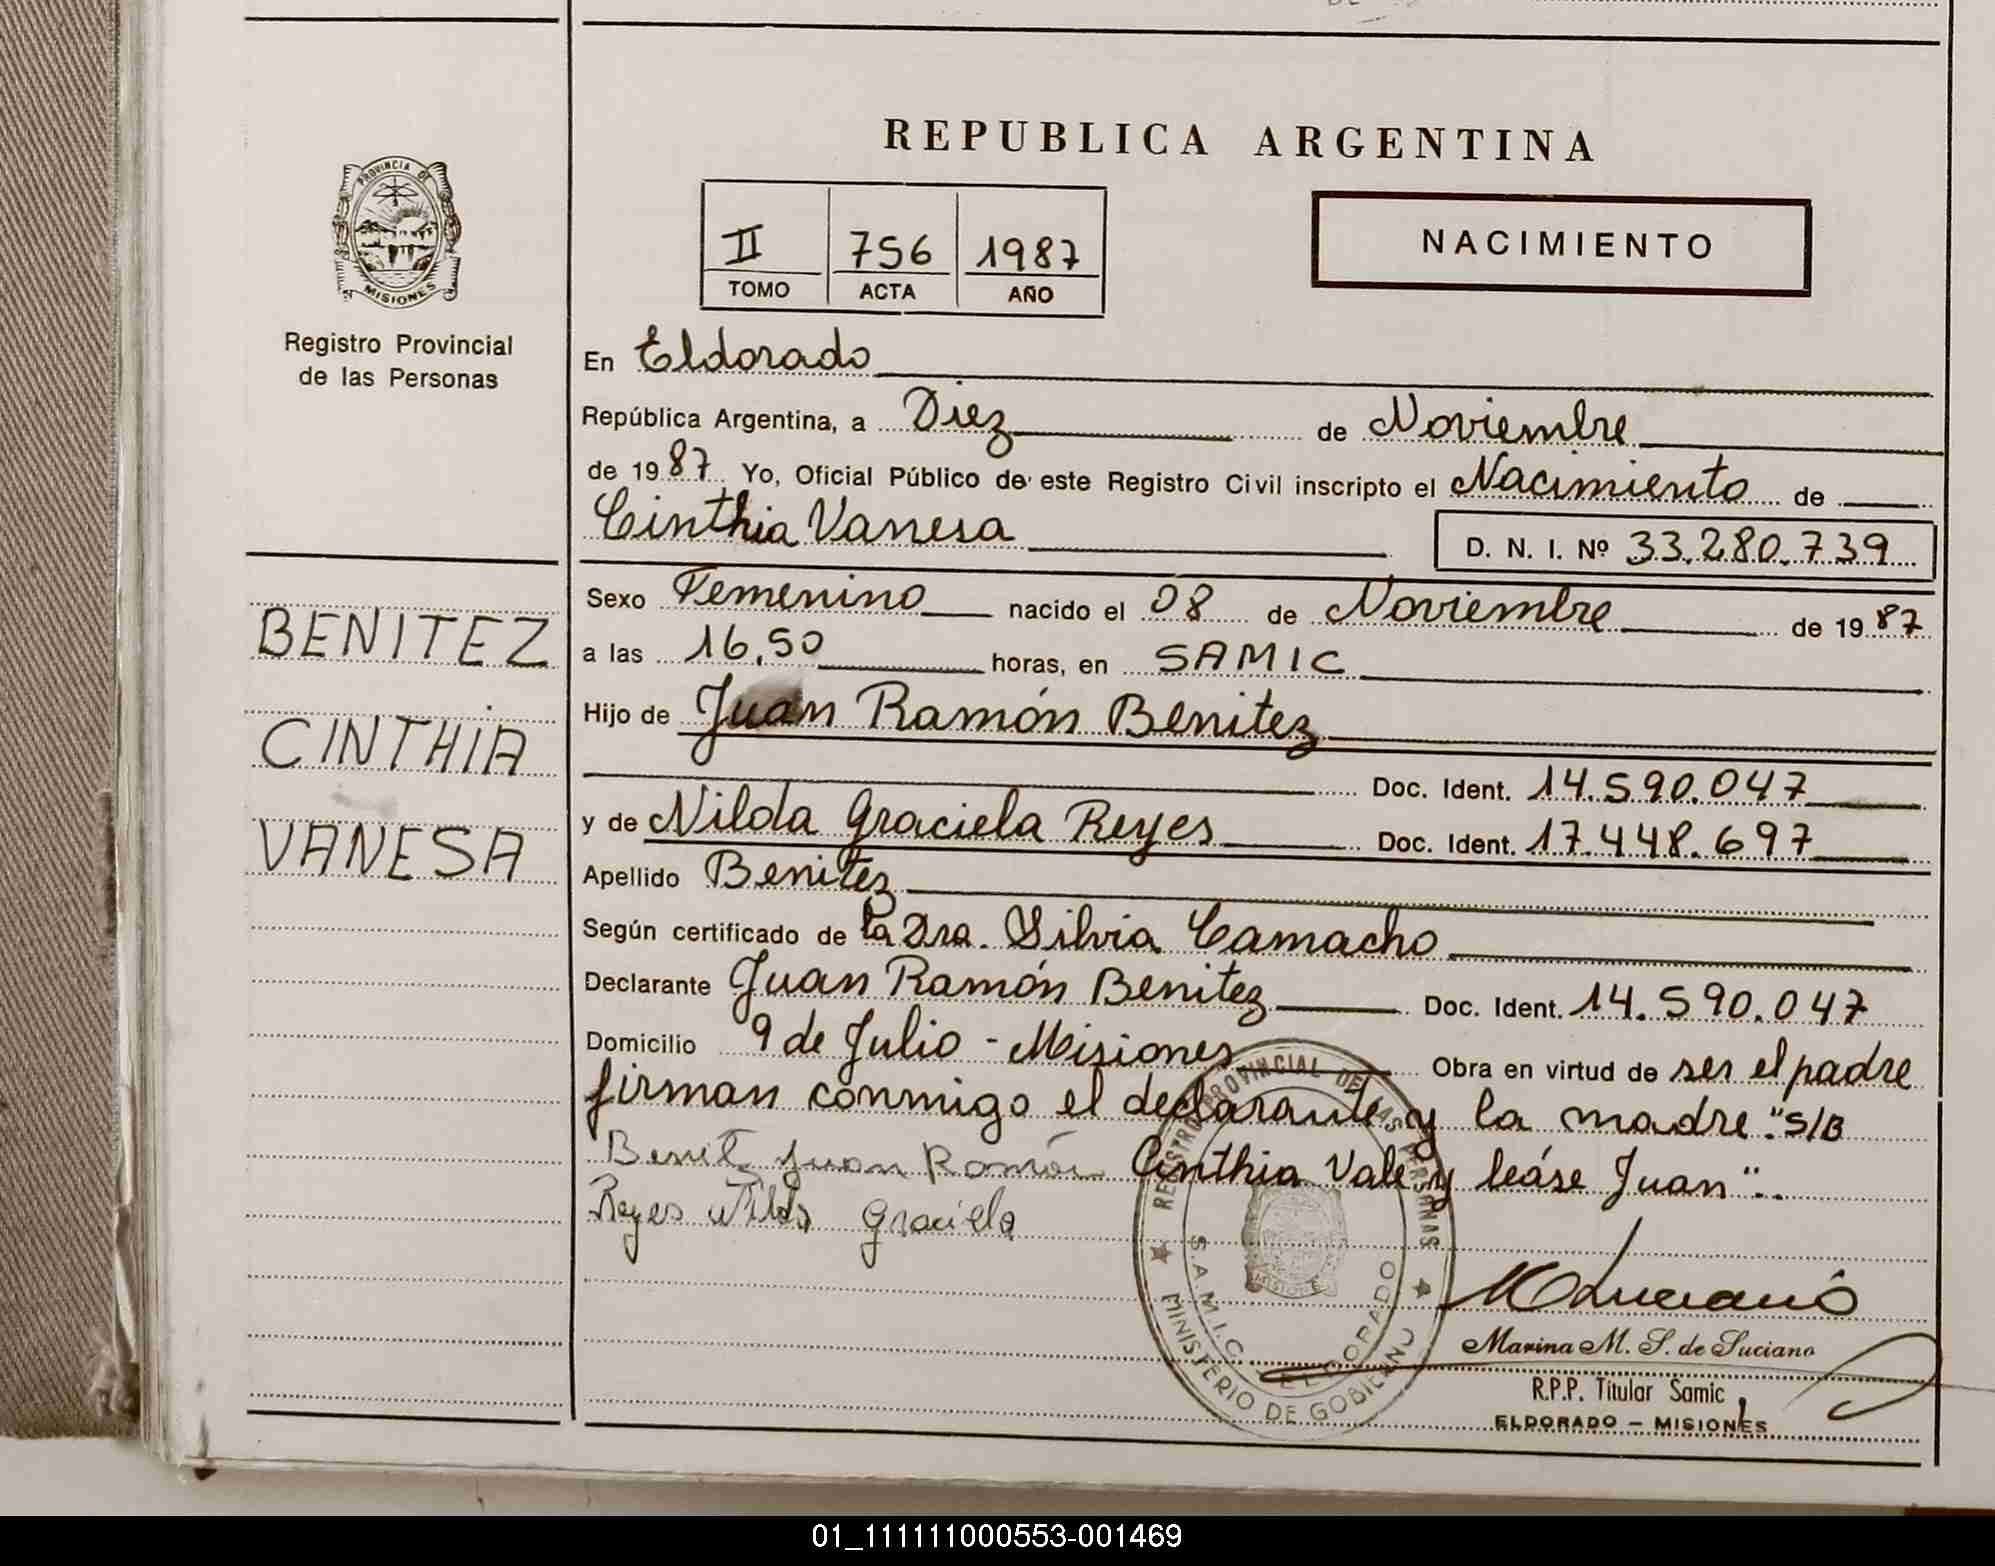 REPUBLICA ARGENTINA
PROVINCIA DE
MISIONES
Registro Provincial
de las Personas
II 756 1987
TOMO ACTA AÑO
NACIMIENTO
En Eldorado
República Argentina, a Diez de Noviembre
de 1987 Yo, Oficial Público de este Registro Civil inscripto el Nacimiento de
Cinthia Vanesa D. N. I. Nº 33.280.739
BENITEZ
CINTHIA
VANESA
Sexo Femenino nacido el 08 de Noviembre de 1987
a las 16,50 horas, en SAMIC
Hijo de Juan Ramón Benitez
Doc. Ident. 14.590.047
y de Nilda Graciela Reyes Doc. Ident. 17.448.697
Apellido Benitez
Según certificado de la Dra. Silvia Camacho
Declarante Juan Ramón Benitez Doc. Ident. 14.590.047
Domicilio 9 de Julio - Misiones Obra en virtud de ser el padre
firman conmigo el declarante y la madre. "S/B
Cinthia Vale y leáse Juan"..
Benit Juan Ramón
Reyes Nilda Graciela
REGISTRO PROVINCIAL DE LAS PERSONAS
S.A.M.I.C. ELDORADO
MINISTERIO DE GOBIERNO
MISIONES
Marina M. S. de Luciano
R.P.P. Titular Samic
ELDORADO - MISIONES
01_111111000553-001469